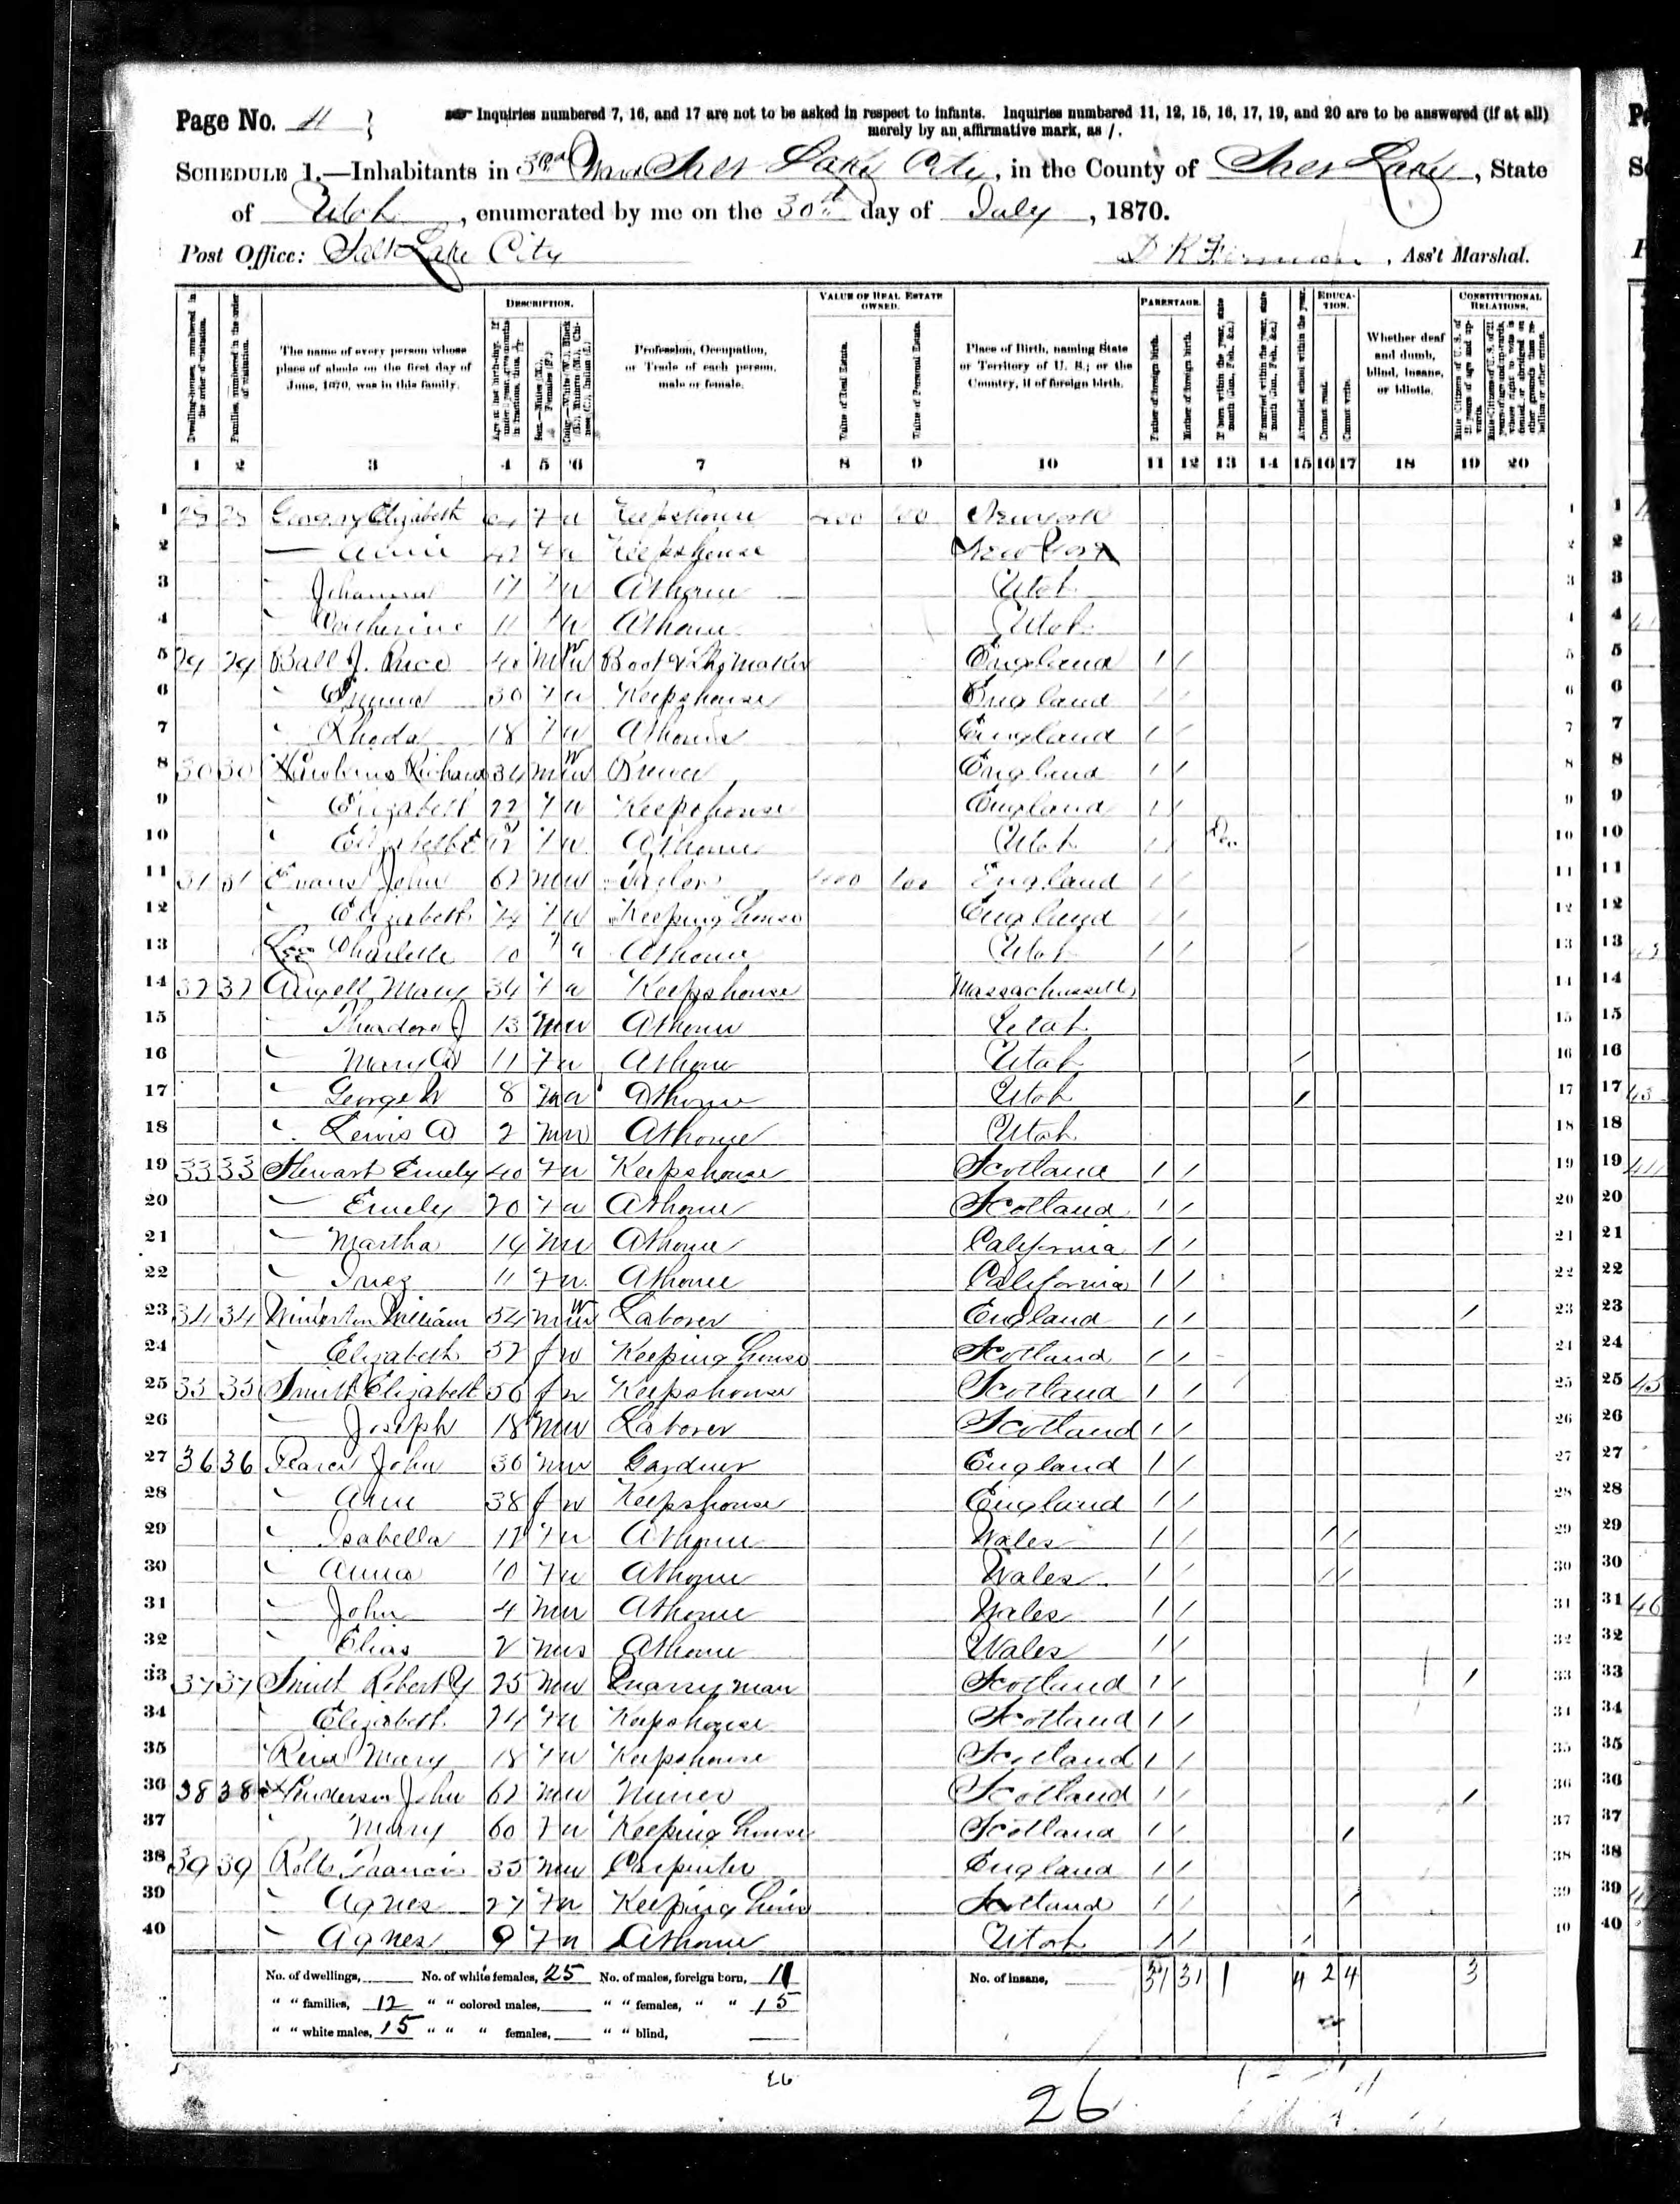 Page No. 4
Inquiries numbered 7, 16, and 17 are not to be asked in respect to infants. Inquiries numbered 11, 12, 15, 16, 17, 19, and 20 are to be answered (if at all)
merely by an affirmative mark, as /.
SCHEDULE 1.—Inhabitants in 3rd Ward Salt Lake City, in the County of Salt Lake, State
of Utah, enumerated by me on the 30th day of July, 1870.
Post Office: Salt Lake City
D K , Ass't Marshal.
Dwelling-houses, numbered in the order of visitation.
Families, numbered in the order of visitation.
The name of every person whose place of abode on the first day of June, 1870, was in this family.
DESCRIPTION.
Age at last birth-day. If under 1 year, give months in fractions, thus, 3/12
Sex.—Males (M.), Females (F.)
Color.—White (W.), Black (B.), Mulatto (M.), Chinese (C.), Indian (I.)
Profession, Occupation, or Trade of each person, male or female.
VALUE OF REAL ESTATE OWNED.
Value of Real Estate.
Value of Personal Estate.
Place of Birth, naming State or Territory of U. S.; or the Country, if of foreign birth.
PARENTAGE.
Father of foreign birth.
Mother of foreign birth.
If born within the year, state month (Jan., Feb., &c.)
If married within the year, state month (Jan., Feb., &c.)
EDUCATION.
Attended school within the year.
Cannot read.
Cannot write.
Whether deaf and dumb, blind, insane, or idiotic.
CONSTITUTIONAL RELATIONS.
Male Citizens of U. S. of 21 years of age and upwards.
Male Citizens of U. S. of 21 years of age and upwards, whose right to vote is denied or abridged on other grounds than rebellion or other crime.
1 2 3 4 5 6 7 8 9 10 11 12 13 14 15 16 17 18 19 20
1 Elizabeth F W Keeps house 400 100 New York
2 42 F W Keeps house New York
3 Johanna 17 F W At home Utah
4 Catherine 11 F W At home Utah
5 29 29 Ball J. Price 40 M W Boot & Sho Maker England / /
6 Emma 30 F W Keeps house England / /
7 Rhoda 18 F W At home England / /
8 30 30 Hawkins Richard 34 M W Brewer England / /
9 Elizabeth 22 F W Keeps house England / /
10 Elizabeth F W At home Utah / /
11 31 31 Evans John 62 M W Tailor 400 100 England / /
12 Elizabeth 74 F W Keeping house England / /
13 Lee Charlette 10 F W At home Utah / / /
14 32 32 Angell Mary 34 F W Keeps house Massachusetts
15 Theodore J 13 M W At home Utah
16 Mary A 11 F W At home Utah /
17 George W 8 M W At home Utah /
18 Lewis A 2 M W At home Utah
19 33 33 Stewart Emely 40 F W Keeps house Scotland / /
20 Emely 20 F W At home Scotland / /
21 Martha 14 M W At home California / /
22 Inez 11 F W. At home California / /
23 34 34 William 54 M W Laborer England / / /
24 Elizabeth 52 f W Keeping house Scotland / /
25 35 35 Smith Elizabeth 56 f W Keeps house Scotland / /
26 Joseph 18 M W Laborer Scotland / /
27 36 36 Pearce John 36 M W Gardner England / /
28 Ann 38 f W Keeps house England / /
29 Isabella 17 F W At home Wales / / / /
30 Anna 10 F W At home Wales / / / /
31 John 4 M W At home Wales / /
32 Elias 2 M W At home Wales / /
33 37 37 Smith Robert G 25 M W Quarry man Scotland / / /
34 Elizabeth 24 F W Keeps house Scotland / /
35 Reid Mary 18 F W Keeps house Scotland / /
36 38 38 Anderson John 62 M W Miner Scotland / / /
37 Mary 60 F W Keeping house Scotland / / /
38 39 39 Rolls Francis 35 M W Carpenter England / /
39 Agnes 27 F W Keeping house Scotland / / /
40 Agnes 9 F W At home Utah / / /
No. of dwellings, No. of white females, 25 No. of males, foreign born, 11 No. of insane, 31 31 1 4 2 4 3
" " families, 12 " " colored males, " " females, " " 15
" " white males, 15 " " " females, " " blind,
26
26